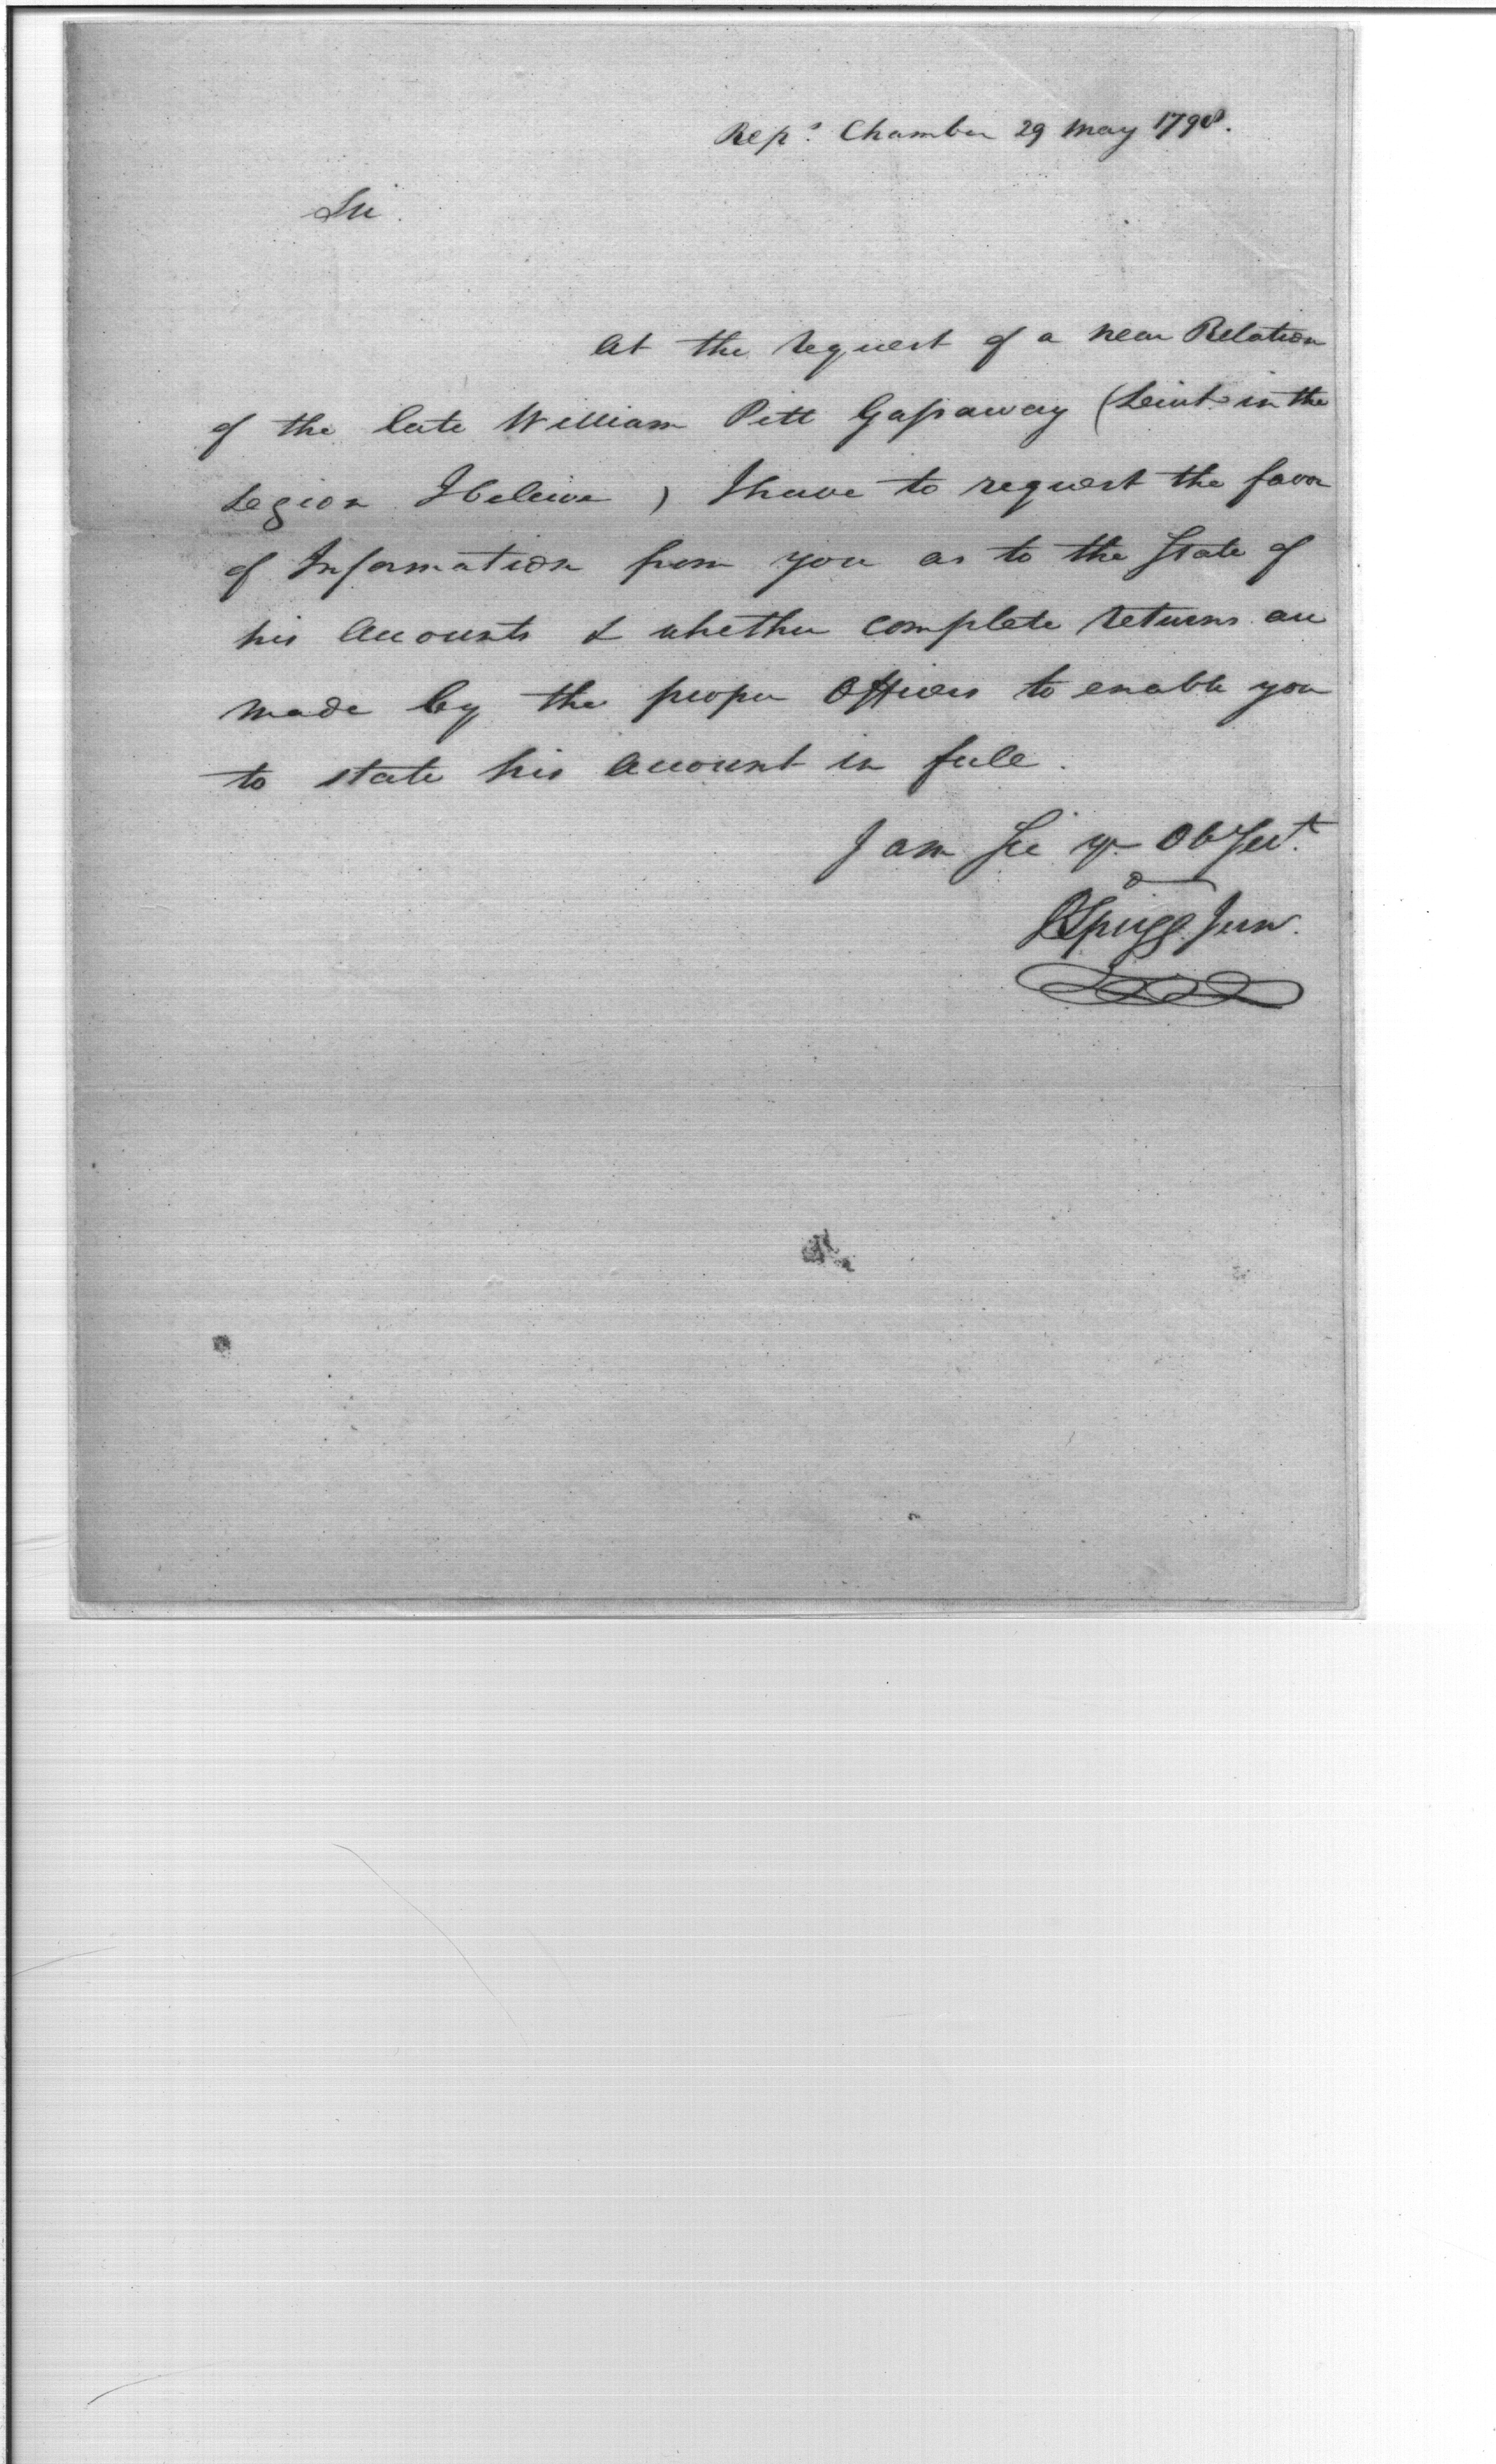 Reps. Chamber 29 May 1798.
Sir.
At the request of a near Relation
of the late William Pitt Gassaway (Leiut. in the
Legion I beleive ) I have to request the favor
of Information from you as to the State of
his Accounts & whether complete returns are
made by the proper Officers to enable you
to state his account in full.
I am Sir yr Ob Sert.
RSprigg Junr.